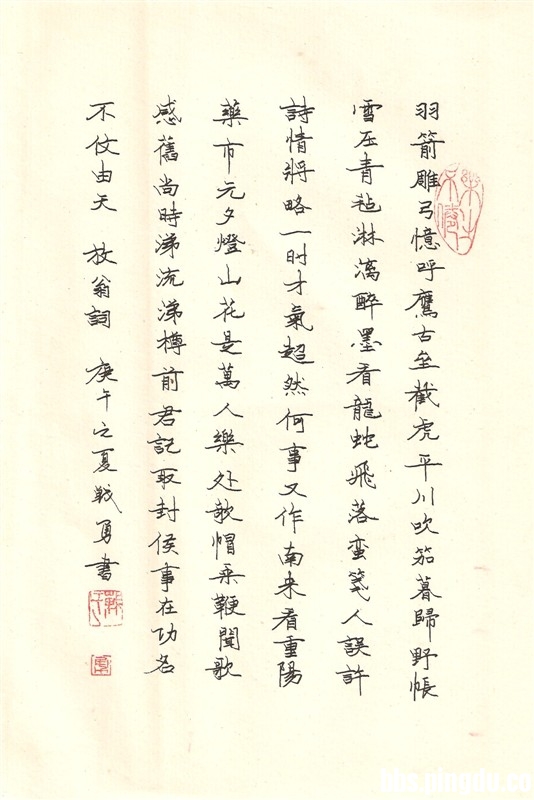 羽箭雕弓憶呼鷹古壘截虎平川吹笳暮歸野帳
雪压青毡淋漓醉墨看龍蛇飛落蛮箋人誤許
詩情將略一时才氣超然何事又作南来看重陽
藥市元夕燈山花是萬人樂处欹帽垂鞭聞歌
感舊尚時涕流涕樽前君記取封侯事在功名
不仗由天 放翁詞 庚午之夏戰勇書